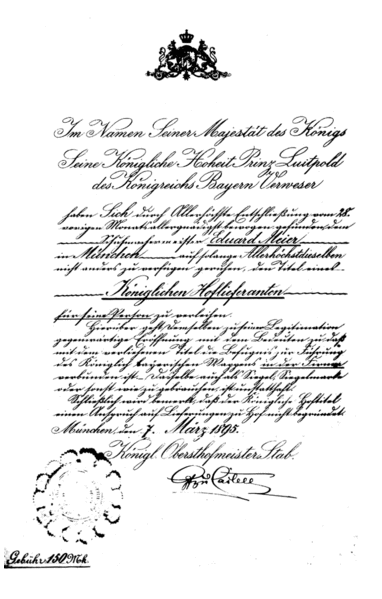 Im Namen Seiner Majestät des Königs
Seine Königliche Hoheit Prinz Luitpold
des Königreichs Bayern Verweser
haben Sich durch Allerhöchste Entschließung vom 28.
vorigen Monats allergnädigst bewogen gefunden, dem
Schuhmachermeister Eduard Meier
in München auf solange Allerhöchstdieselben
nicht anders zu verfügen geruhen, den Titel eines
Königlichen Hoflieferanten
für seine Person zu verleihen.
Hierüber geht demselben zu seiner Legitimation
gegenwärtige Eröffnung mit dem Bedeuten zu, daß
mit dem verliehenen Titel die Befugnis zur Führung
des Königlich bayerischen Wappens in der Firma
verbunden ist, dasselbe aber als Siegel, Siegelmarke
oder sonst wie zu gebrauchen, ist untersagt.
Schließlich wird bemerkt, daß der Königliche Hoftitel
einen Anspruch auf Lieferungen zu Hof nicht begründet.
München, den 7. März 1895.
Königl. Obersthofmeister Stab.
Gebühr 150 Mk.